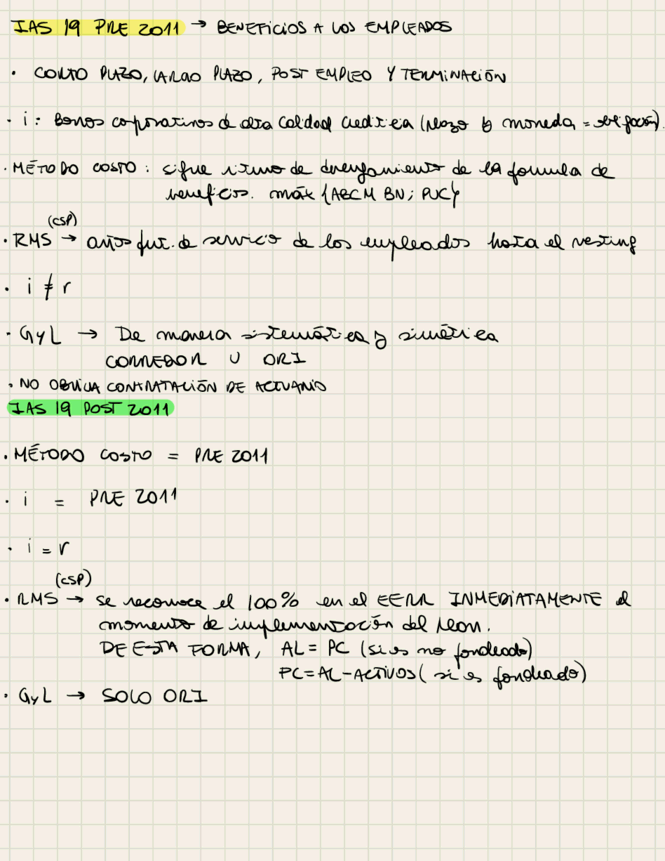 IAS 19 PRE 2011 → BENEFICIOS A LOS EMPLEADOS
• CORTO PLAZO, LARGO PLAZO, POST EMPLEO Y TERMINACIÓN
• i : Bonos corporativos de alta calidad crediticia (plazo y moneda = obligación).
• MÉTODO COSTO : sigue ritmo de devengamiento de la formula de
beneficio. máx {ABCM BN; PUC}
(CSP)
• RMS → años fut. de servicio de los empleados hasta el vesting
• i ≠ r
• GyL → De manera sistemática y simétrica
CORREDOR U ORI
• NO OBLIGA CONTRATACIÓN DE ACTUARIO
IAS 19 POST 2011
• MÉTODO COSTO = PRE 2011
• i = PRE 2011
• i = r
(CSP)
• RMS → se reconoce el 100% en el EERR INMEDIATAMENTE al
momento de implementación del plan.
DE ESTA FORMA, AL = PC (si es no fondeado)
PC = AL - ACTIVOS ( si es fondeado)
• GyL → SOLO ORI